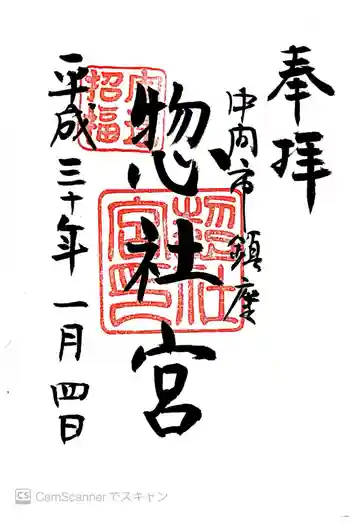 奉拝
中内市鎮座
惣社宮
平成三十年一月四日
惣社宮印
招福
CamScannerでスキャン